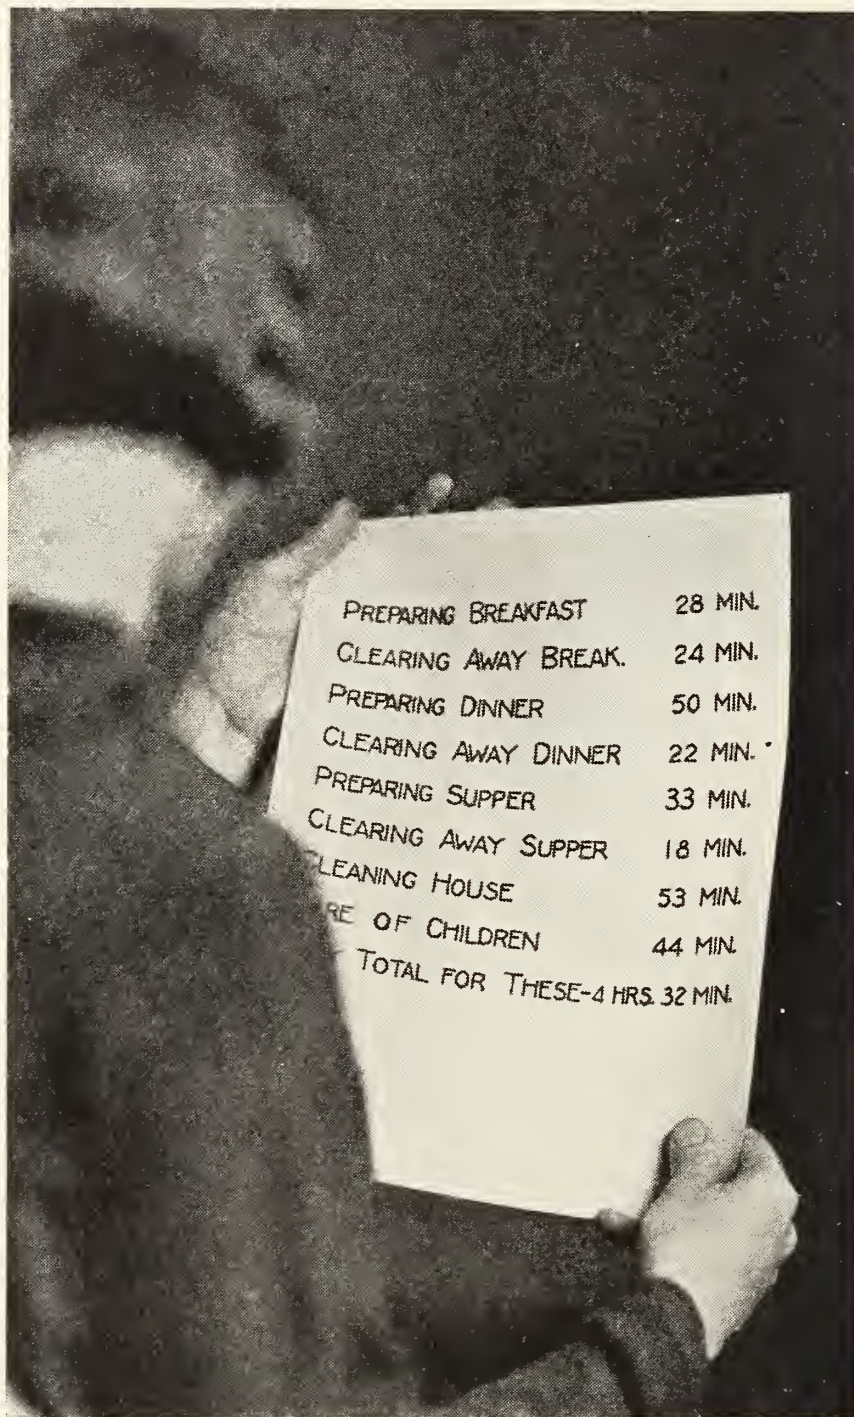 PREPARING BREAKFAST 28 MIN.
CLEARING AWAY BREAK. 24 MIN.
PREPARING DINNER 50 MIN.
CLEARING AWAY DINNER 22 MIN.
PREPARING SUPPER 33 MIN.
CLEARING AWAY SUPPER 18 MIN.
CLEANING HOUSE 53 MIN.
RE OF CHILDREN 44 MIN.
TOTAL FOR THESE-4 HRS. 32 MIN.